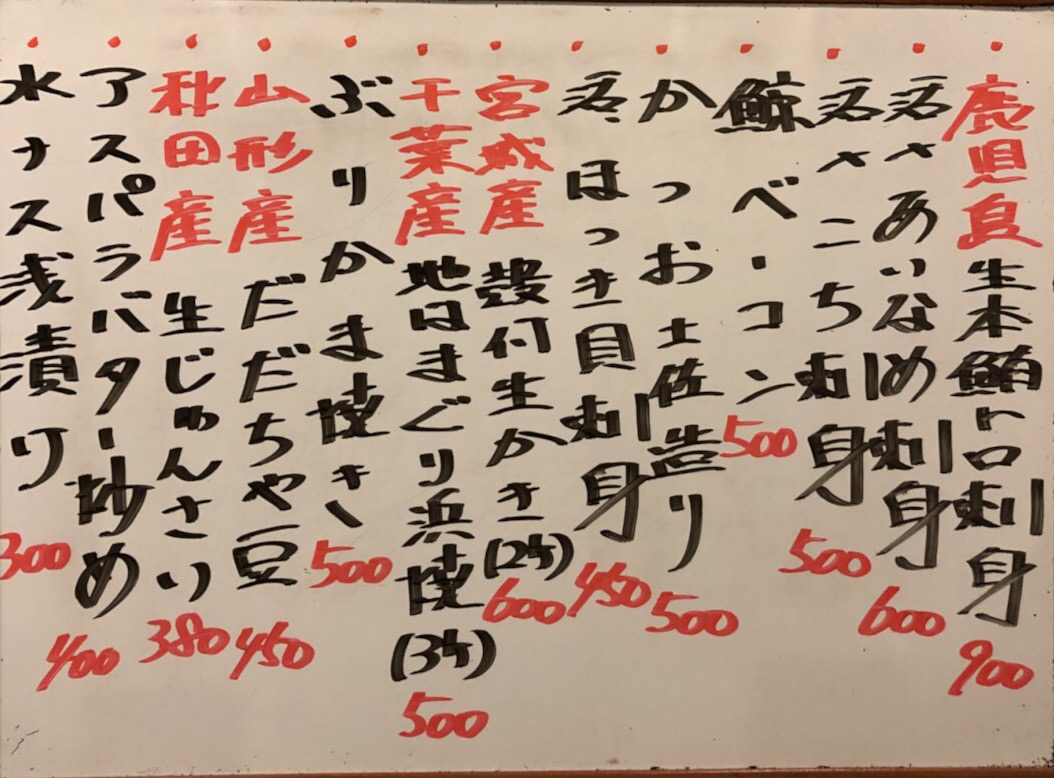 ・鹿児島生本鮪トロ刺身900
・活〆あいなめ刺身600
・活〆こち刺身500
・鯨ベ・コン500
・かつお土佐造り500
・活ほっき貝刺身450
・宮城産殻付生かき(2ケ)600
・千葉産地はまぐり浜焼(3ケ)500
・ぶりかま焼き500
・山形産だだちゃ豆450
・秋田産生じゅんさい380
・アスパラバター炒め400
・水ナス浅漬り300